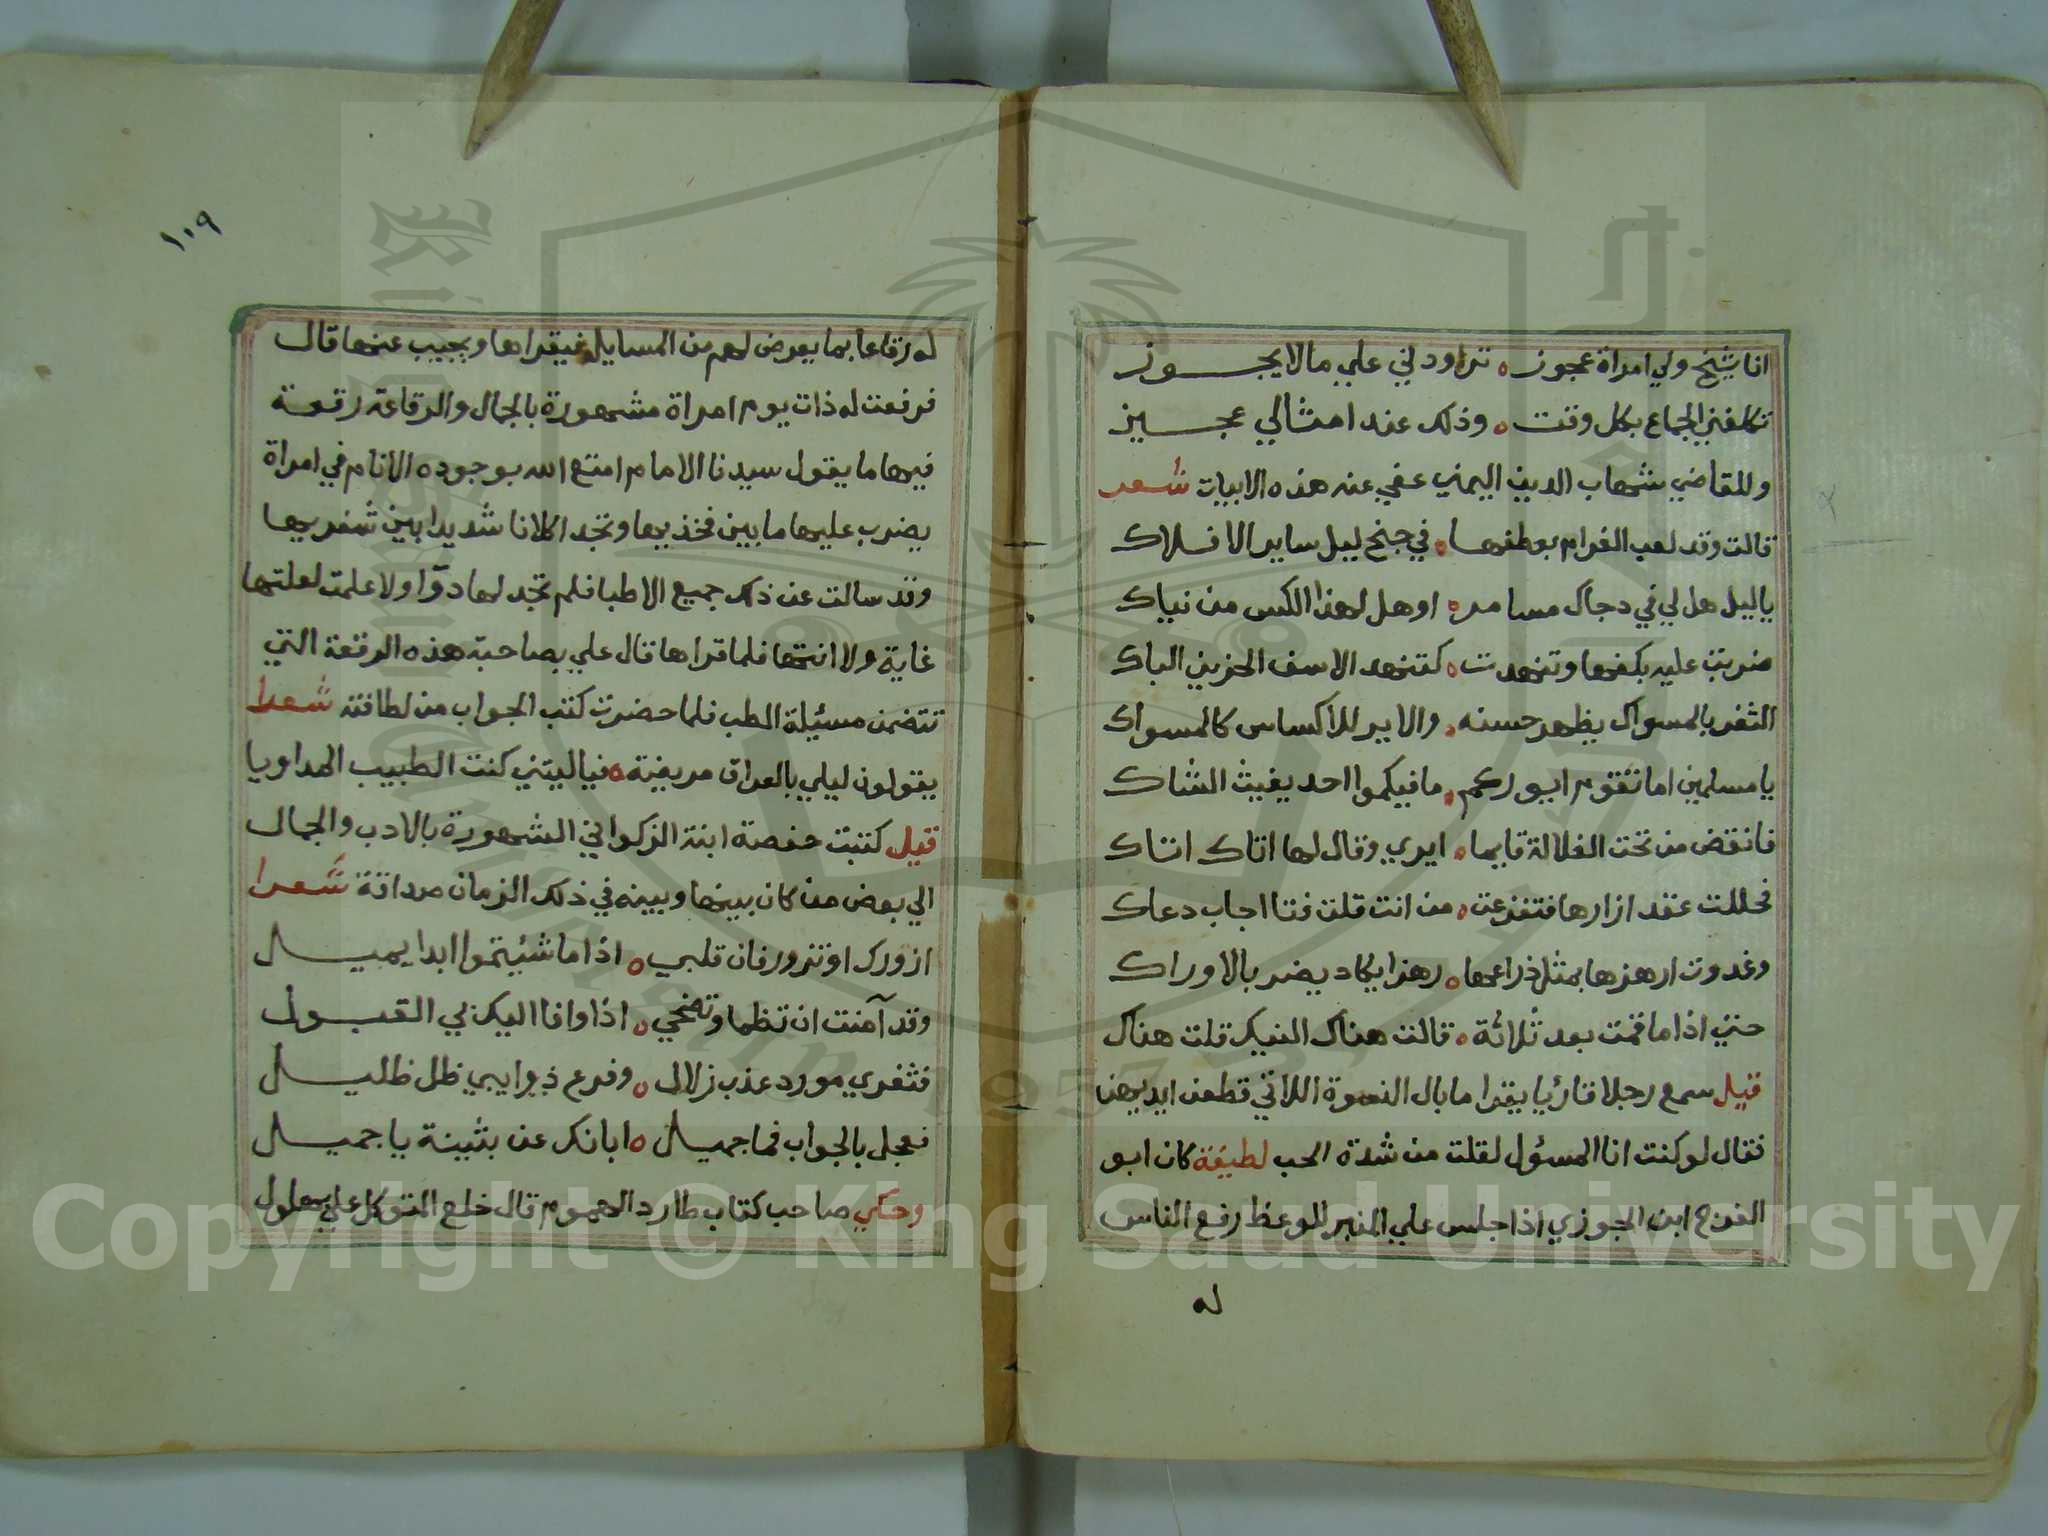 انا شيخ ولي امراة عجوز ه تراودني علي ما لا يجوز
تكلفني الجماع بكل وقت ه وذلك عند امثالي عجيز
وللقاضي شهاب الدين اليمني عفي عنه هذه الابيات شعر
قالت وقد لعب الغرام بعطفها ه في جنح ليل ساير الافلاك
ياليل هل لي في دجاك مسامر ه او هل لهذا الكس من نياك
ضربت عليه بكفها وتنهدت ه كتنهد الاسف الحزين الباك
الثغر بالمسواك يظهر حسنه ه والاير للاكساس كالمسواك
يا مسلمين اما تقوم ايوركم ه ما فيكموا احد يغيث الشاك
فانقض من تحت الغلالة قايما ه ايري وقال لها اتاك اتاك
فحللت عقد ازارها فتفزعت ه من انت قلت فتا اجاب دعاك
وغدوت ارهزها بمثل ذراعها ه رهزا يكاد يضر بالاوراك
حتي اذا ما قمت بعد ثلاثة ه قالت هناك النيك قلت هناك
قيل سمع رجلا قارئا يقرا ما بال النسوة اللاتي قطعن ايديهن
فقال لو كنت انا المسؤل لقلت من شدة الحب لطيفة كان ابو
الفرج ابن الجوزي اذا جلس علي المنبر للوعظ رفع الناس
له
١٠٩
له رقاعا بما يعرض لهم من المسايل فيقراها ويجيب عنها قال
فرفعت له ذات يوم امراة مشهورة بالجمال والرقاعة رقعة
فيها ما يقول سيدنا الامام امتع الله بوجوده الانام في امراة
يضرب عليها ما بين فخذيها وتجد اكلانا شديدا بين شفريها
وقد سالت عن ذلك جميع الاطبا فلم تجد لها دوّا ولا علمت لعلتها
غاية ولا انتها فلما قراها قال علي بصاحبة هذه الرقعة التي
تتضمن مسئيلة الطب فلما حضرت كتب الجواب من لطافته شعرا
يقولون ليلي بالعراق مريضة ه فيا ليتني كنت الطبيب المداويا
قيل كتبت حفصة ابنة الزكواني المشهورة بالادب والجمال
الي بعض من كان بينها وبينه في ذلك الزمان صداقة شعرا
ازورك او تزور فان قلبي ه اذا ما شئيتموا ابدا يميل
وقد آمنت ان تظما وتضحي ه اذا وافا اليك بي القبول
فثغري مورد عذب زلال ه وفرع ذوايبي ظل ظليل
فعجل بالجواب فما جميل ه ابانك عن بثينة يا جميل
وحكي صاحب كتاب طارد الهموم قال خلع المتوكل علي بهلول
Copyright © King Saud University
1957